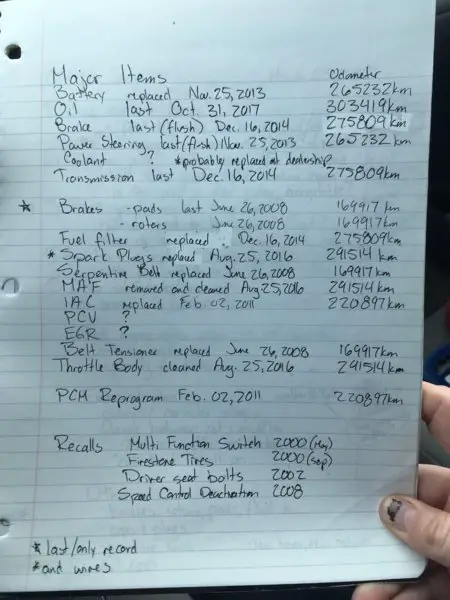 Major Items Odometer
Battery replaced Nov. 25, 2013 265232km
Oil last Oct. 31, 2017 303419km
Brake last (flush) Dec. 16, 2014 275809km
Power Steering last (flush) Nov. 25, 2013 265232 km
Coolant ? *probably replaced at dealership
Transmission last Dec. 16, 2014 275809km
* Brakes - pads last June 26, 2008 169917 km
- rotors June 26, 2008 169917km
Fuel filter replaced Dec. 16, 2014 275809km
* Spark Plugs replaced Aug. 25, 2016 291514 km
Serpentine Belt replaced June 26, 2008 169917km
MAF removed and cleaned Aug 25, 2016 291514km
IAC replaced Feb. 02, 2011 220897km
PCV ?
EGR ?
Belt Tensioner replaced June 26, 2008 169917km
Throttle Body cleaned Aug. 25, 2016 291514km
PCM Reprogram Feb. 02, 2011 220897km
Recalls Multi Function Switch 2000 (May)
Firestone Tires 2000 (Sep)
Driver seat bolts 2002
Speed Control Deactivation 2008
* last/only record
* and wires